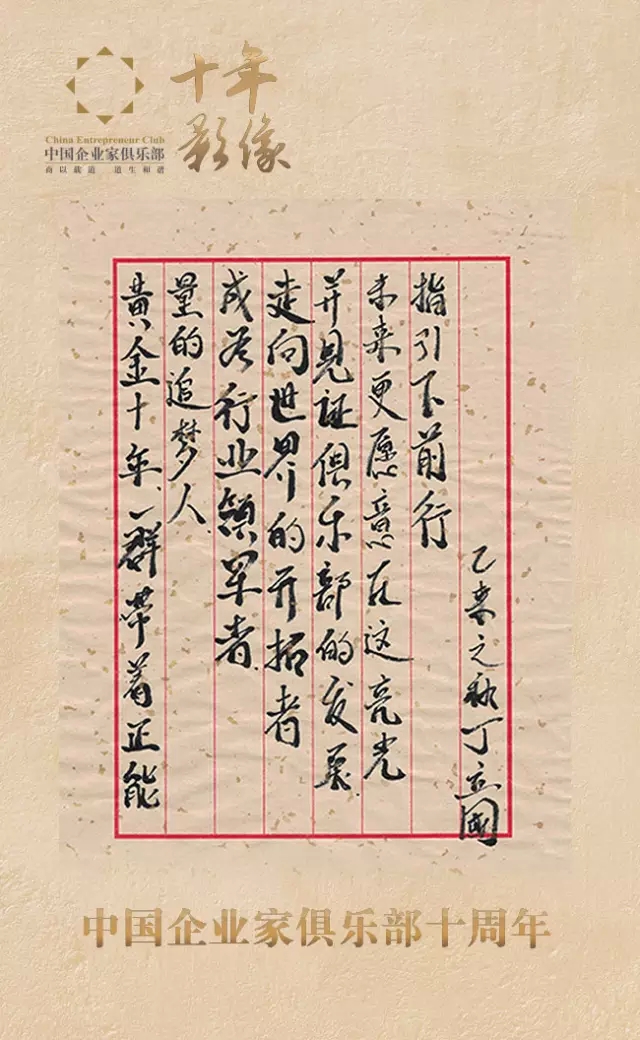 China Entrepreneur Club
中国企业家俱乐部
商以载道 道生和谐
十年
影像
黄金十年、一群带着正能
量的追梦人
成为行业领军者
走向世界的开拓者
并见证俱乐部的发展
未来更愿意在这亮光
指引下前行
乙未之秋丁立國
中国企业家俱乐部十周年